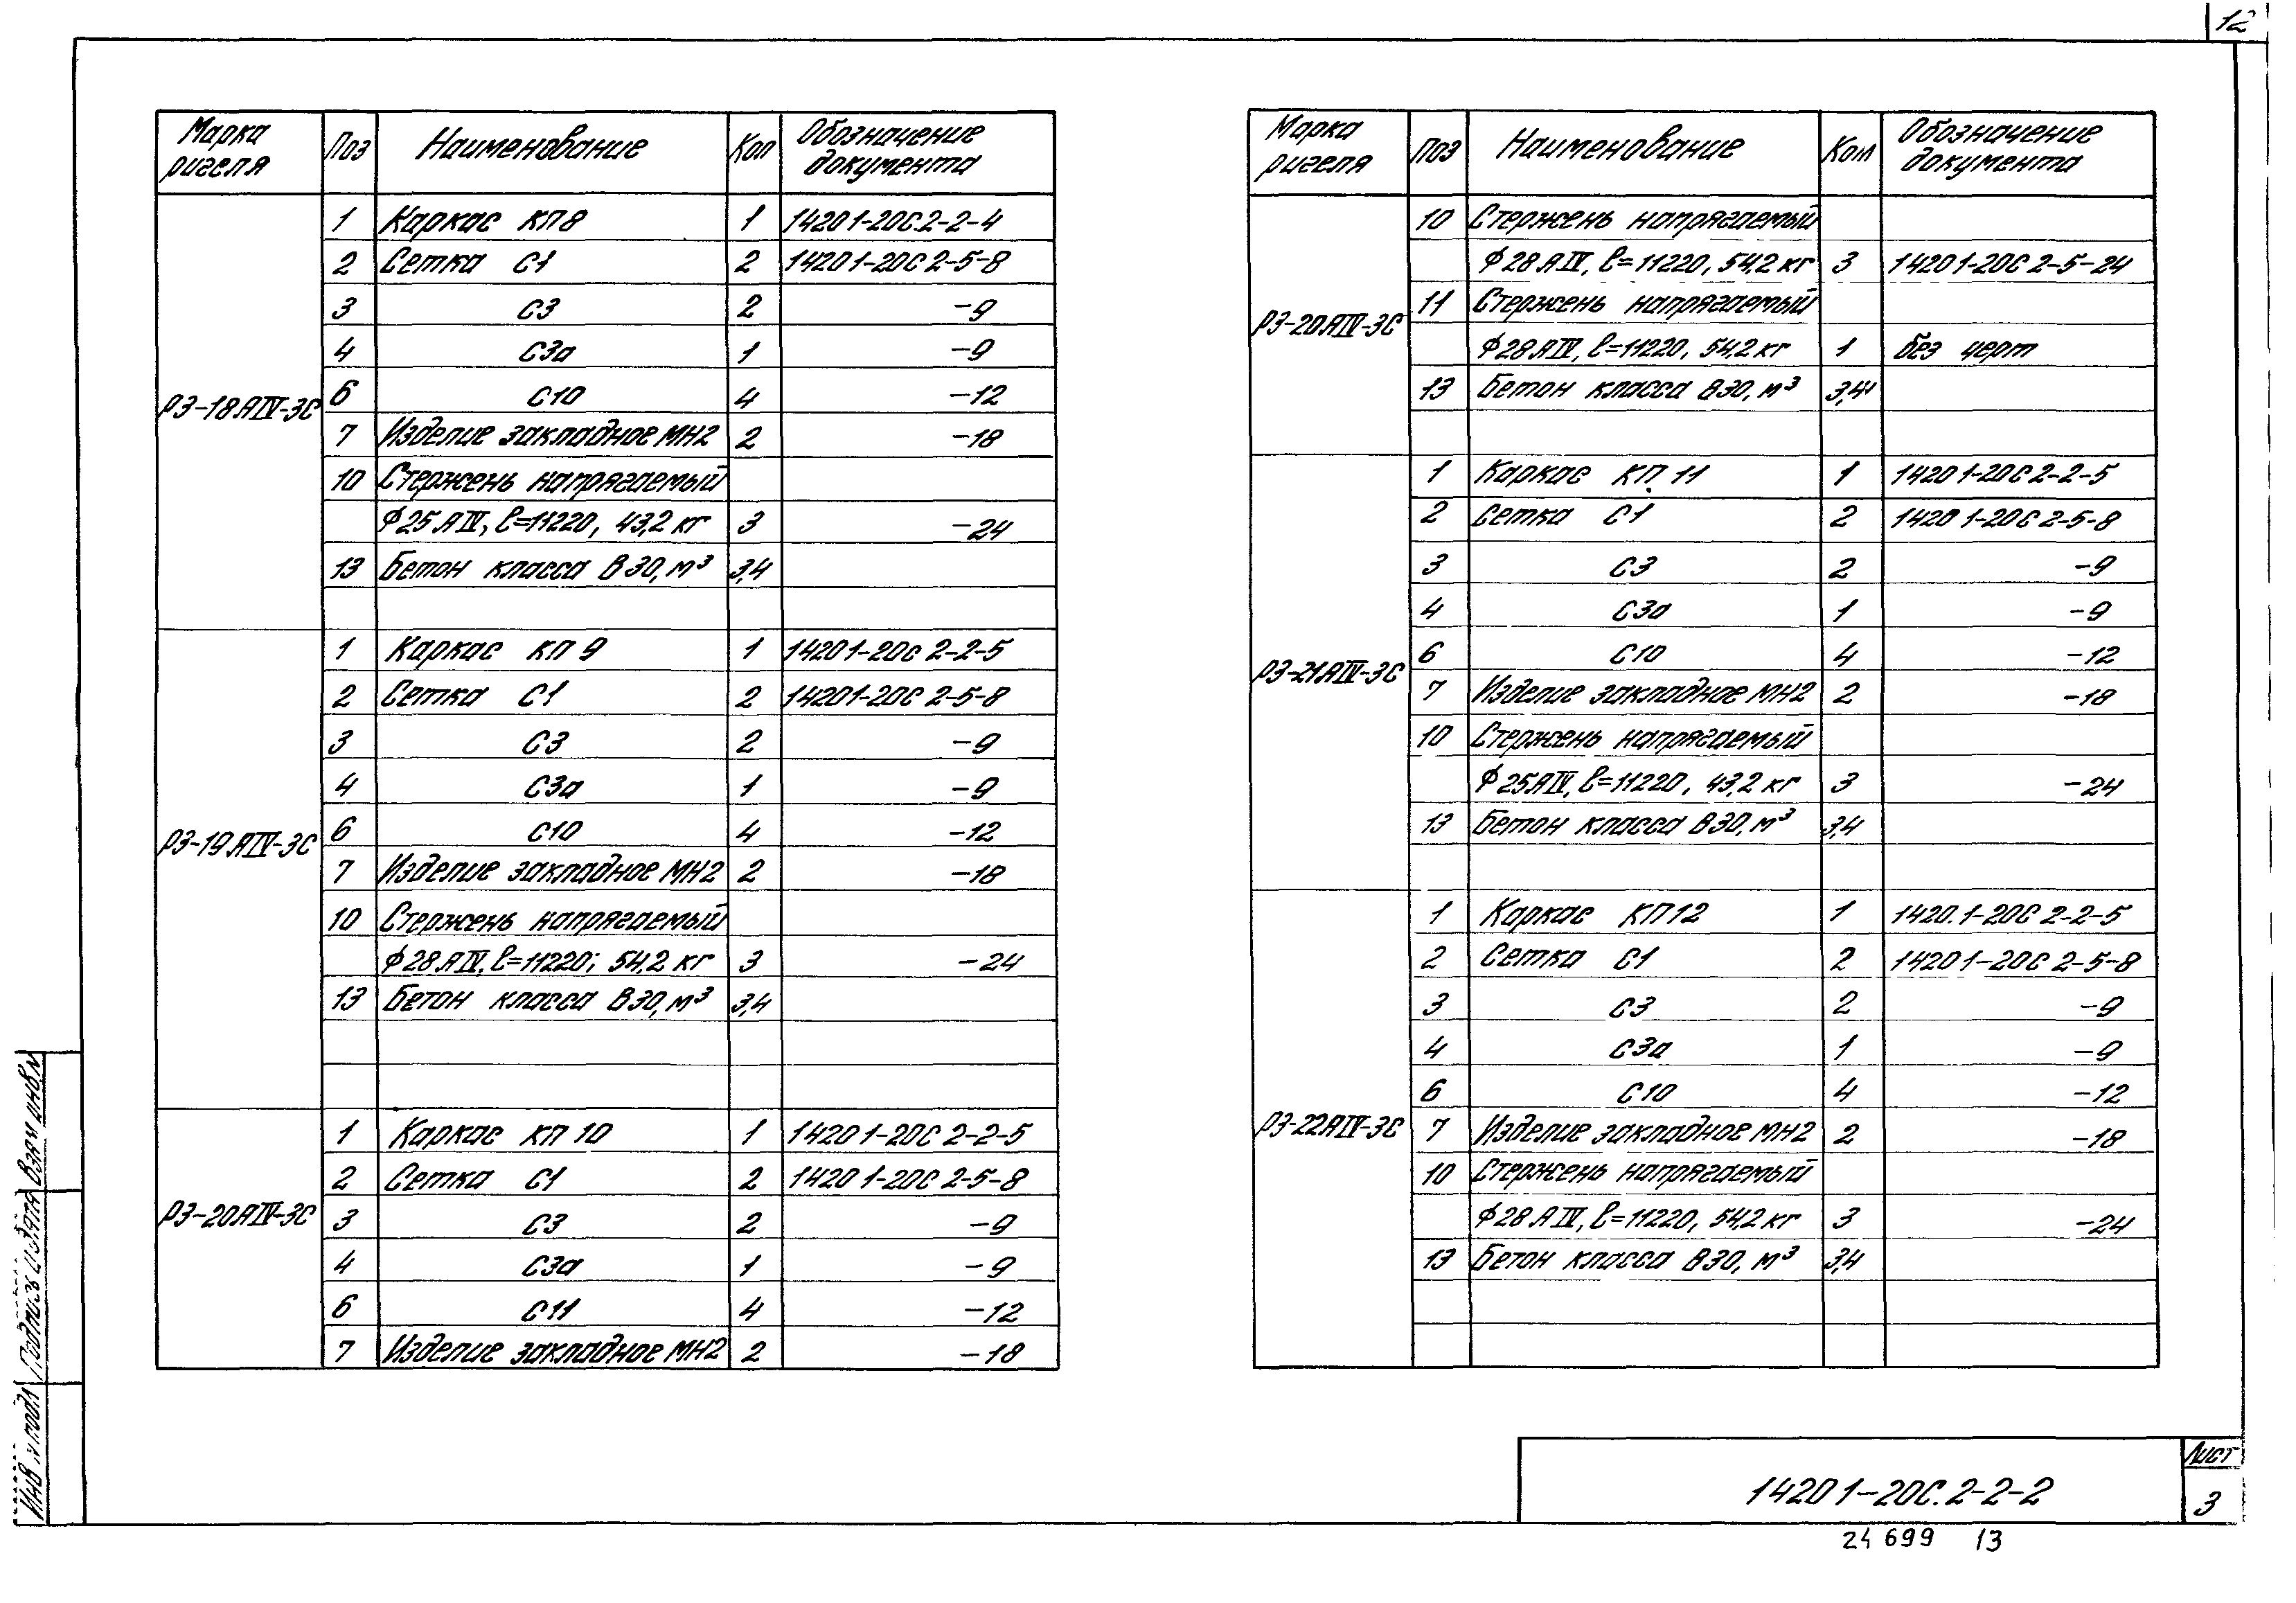 12
Марка ригеля Поз Наименование Кол Обозначение документа
Р3-18АIV-3С
1 Каркас КП8 1 1420 1-20С.2-2-4
2 Сетка С1 2 1420 1-20С 2-5-8
3 С3 2 -9
4 С3а 1 -9
6 С10 4 -12
7 Изделие закладное МН2 2 -18
10 Стержень напрягаемый
ϕ25АIV, ℓ=11220, 43,2 кг 3 -24
13 Бетон класса В30, м³ 3,4
Р3-19АIV-3С
1 Каркас КП 9 1 1420 1-20С 2-2-5
2 Сетка С1 2 1420 1-20С 2-5-8
3 С3 2 -9
4 С3а 1 -9
6 С10 4 -12
7 Изделие закладное МН2 2 -18
10 Стержень напрягаемый
ϕ28АIV, ℓ=11220; 54,2 кг 3 -24
13 Бетон класса В30, м³ 3,4
Р3-20АIV-3С
1 Каркас КП 10 1 1420 1-20С 2-2-5
2 Сетка С1 2 1420 1-20С 2-5-8
3 С3 2 -9
4 С3а 1 -9
6 С11 4 -12
7 Изделие закладное МН2 2 -18
Марка ригеля Поз Наименование Кол Обозначение документа
Р3-20АIV-3С
10 Стержень напрягаемый
ϕ28АIV, ℓ=11220, 54,2 кг 3 1420 1-20С 2-5-24
11 Стержень напрягаемый
ϕ28АIV, ℓ=11220, 54,2 кг 1 без черт
13 Бетон класса В30, м³ 3,4
Р3-21АIV-3С
1 Каркас КП 11 1 1420 1-20С 2-2-5
2 Сетка С1 2 1420 1-20С 2-5-8
3 С3 2 -9
4 С3а 1 -9
6 С10 4 -12
7 Изделие закладное МН2 2 -18
10 Стержень напрягаемый
ϕ25АIV, ℓ=11220, 43,2 кг 3 -24
13 Бетон класса В30, м³ 3,4
Р3-22АIV-3С
1 Каркас КП12 1 1420.1-20С 2-2-5
2 Сетка С1 2 1420 1-20С 2-5-8
3 С3 2 -9
4 С3а 1 -9
6 С10 4 -12
7 Изделие закладное МН2 2 -18
10 Стержень напрягаемый
ϕ28АIV, ℓ=11220, 54,2 кг 3 -24
13 Бетон класса В30, м³ 3,4
Инв N подл Подпись и дата Взам инв N
1420 1-20С.2-2-2
Лист
3
24 699 13